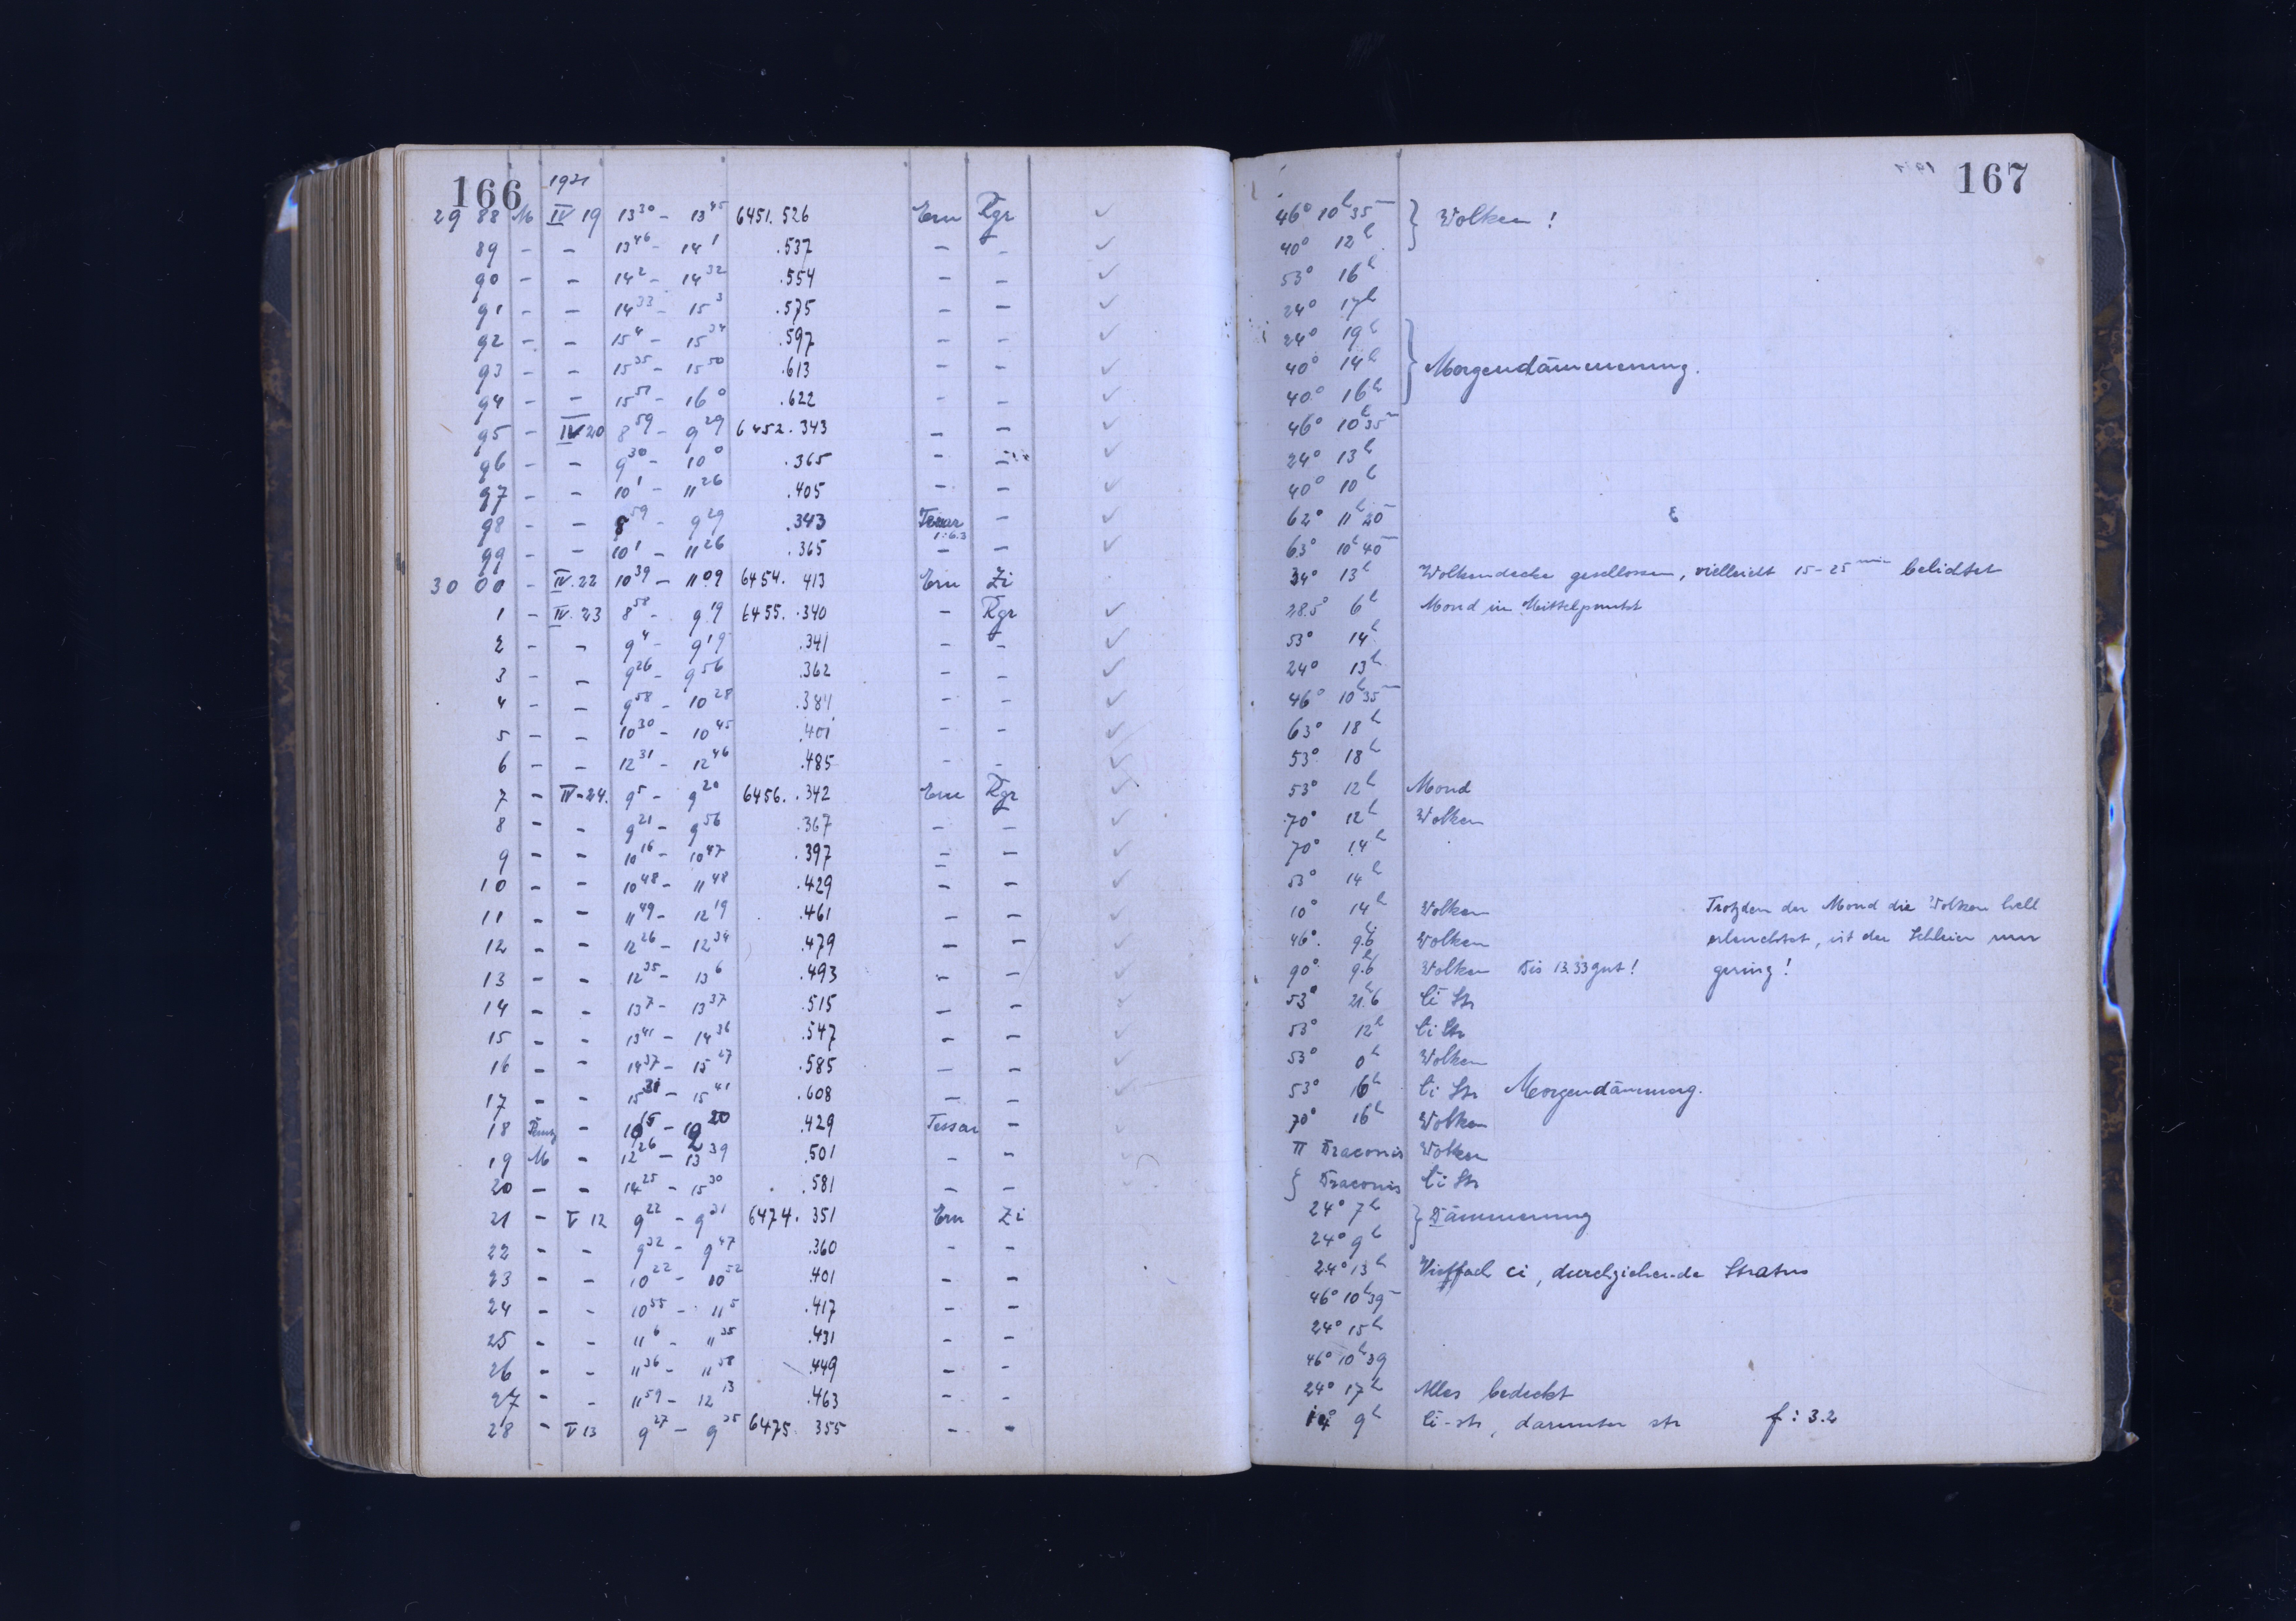 166 1921 167
29 88 M IV 19 13 30 - 13 45 6451.526 Ern Rgr ✓ 46° 10h 35m } Wolken !
89 - - 13 46 - 14 1 .537 - - ✓ 40° 12h
90 - - 14 2 - 14 32 .554 - - ✓ 53° 16h
91 - - 14 33 - 15 3 .575 - - ✓ 24° 17h
92 - - 15 4 - 15 34 .597 - - ✓ 24° 19h
93 - - 15 35 - 15 50 .613 - - ✓ 40° 14h } Morgendämmerung.
94 - - 15 51 - 16 0 .622 - - ✓ 40° 16h
95 - IV 20 8 59 - 9 29 6452.343 - - ✓ 46° 10h 35m
96 - - 9 30 - 10 0 .365 - - ✓ 24° 13h
97 - - 10 1 - 11 26 .405 - - ✓ 40° 10h
98 - - 8 59 - 9 29 .343 Tessar 1:6.3 - ✓ 62° 11h 20m
99 - - 10 1 - 11 26 .365 - - ✓ 63° 10h 40m
30 00 - IV.22 10 39 - 11 09 6454.413 Ern Zi 34° 13h Wolkendecke geschlossen, vielleicht 15-25 min belichtet
1 - IV.23 8 58 - 9 19 6455..340 - Rgr ✓ 28.5° 6h Mond im Mittelpunkt
2 - - 9 4 - 9 19 .341 - - ✓ 53° 14h
3 - - 9 26 - 9 56 .362 - - ✓ 24° 13h
4 - - 9 58 - 10 28 .384 - - ✓ 46° 10h 35m
5 - - 10 30 - 10 45 .401 - - ✓ 63° 18h
6 - - 12 31 - 12 46 .485 - - ✓ 53° 18h
7 - IV-24. 9 5 - 9 20 6456..342 Ern Rgr ✓ 53° 12h Mond
8 - - 9 21 - 9 56 .367 - - ✓ 70° 12h Wolken
9 - - 10 16 - 10 47 .397 - - ✓ 70° 14h
10 - - 10 48 - 11 48 .429 - - ✓ 53° 14h
11 - - 11 49 - 12 19 .461 - - ✓ 10° 14h Wolken Trotzdem der Mond die Wolken hell
12 - - 12 26 - 12 34 .479 - - ✓ 46° 9h.6 Wolken erleuchtet, ist der Schleier nur
13 - - 12 35 - 13 6 .493 - - ✓ 90° 9h.6 Wolken Bis 13.33 gut! gering!
14 - - 13 7 - 13 37 .515 - - ✓ 53° 21h.6 Ci Str
15 - - 13 41 - 14 36 .547 - - ✓ 53° 12h Ci Str
16 - - 14 37 - 15 27 .585 - - ✓ 53° 0h Wolken
17 - - 15 31 - 15 41 .608 - - ✓ 53° 16h Ci Str Morgendämmerung.
18 Perutz - 10 15 - 10 20 .429 Tessar - ✓ 70° 16h Wolken
19 M - 12 26 - 13 39 .501 - - π Draconis Wolken
20 - - 14 25 - 15 30 .581 - - ζ Draconis Ci Str
21 - V 12 9 22 - 9 31 6474.351 Ern Zi 24° 7h } Dämmerung
22 - - 9 32 - 9 47 .360 - - 24° 9h
23 - - 10 22 - 10 52 .401 - - 24° 13h Vielfach ci, durchziehende Stratus
24 - - 10 55 - 11 5 .417 - - 46° 10h 39m
25 - - 11 6 - 11 35 .431 - - 24° 15h
26 - - 11 36 - 11 58 .449 - - 46° 10h 39
27 - - 11 59 - 12 13 .463 - - 24° 17h Alles bedeckt
28 - V 13 9 27 - 9 35 6475 355 - - 9h Ci-str, darunter str f:3.2